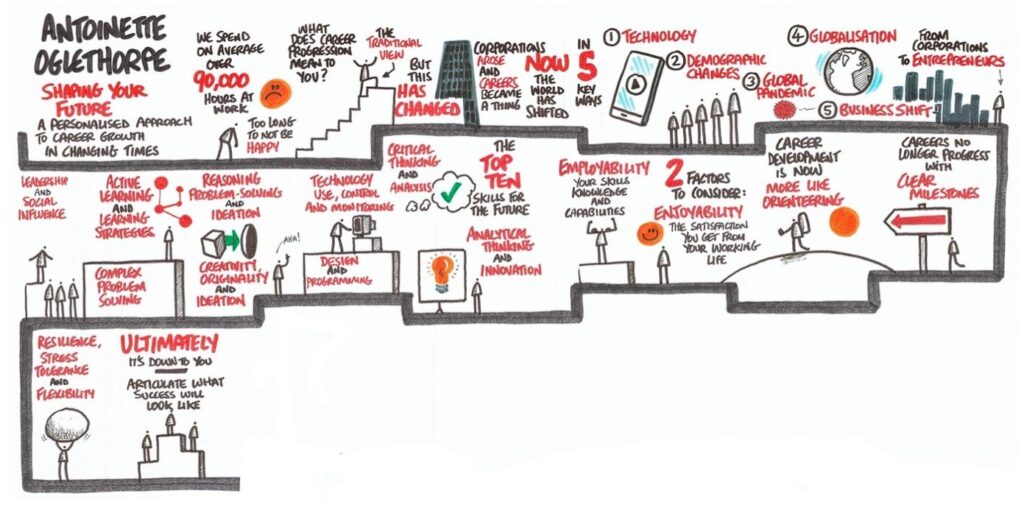 ANTOINETTE
OGLETHORPE
SHAPING YOUR
FUTURE
A PERSONALISED APPROACH
TO CAREER GROWTH
IN CHANGING TIMES
WE SPEND
ON AVERAGE
OVER
90,000
HOURS AT
WORK
TOO LONG
TO NOT BE
HAPPY
WHAT
DOES CAREER
PROGRESSION
MEAN TO
YOU?
THE
TRADITIONAL
VIEW
BUT
THIS
HAS
CHANGED
CORPORATIONS
AROSE
AND
CAREERS
BECAME
A THING
NOW
THE
WORLD
HAS
SHIFTED
IN
5
KEY
WAYS
① TECHNOLOGY
② DEMOGRAPHIC
CHANGES
③ GLOBAL
PANDEMIC
④ GLOBALISATION
⑤ BUSINESS SHIFT
FROM
CORPORATIONS
TO ENTREPRENEURS
CAREERS NO
LONGER PROGRESS
WITH
CLEAR
MILESTONES
CAREER
DEVELOPMENT
IS NOW
MORE LIKE
ORIENTEERING
2 FACTORS
TO CONSIDER:
ENJOYABILITY
THE SATISFACTION
YOU GET FROM
YOUR WORKING
LIFE
EMPLOYABILITY
YOUR SKILLS
KNOWLEDGE
AND
CAPABILITIES
THE
TOP
TEN
SKILLS FOR
THE FUTURE
ANALYTICAL
THINKING
AND
INNOVATION
CRITICAL
THINKING
AND
ANALYSIS
TECHNOLOGY
USE, CONTROL
AND MONITORING
DESIGN
AND
PROGRAMMING
AHA!
REASONING
PROBLEM-SOLVING
AND
IDEATION
CREATIVITY,
ORIGINALITY
AND
IDEATION
ACTIVE
LEARNING
AND
LEARNING
STRATEGIES
COMPLEX
PROBLEM
SOLVING
LEADERSHIP
AND
SOCIAL
INFLUENCE
RESILIENCE,
STRESS
TOLERANCE
AND
FLEXIBILITY
ULTIMATELY
IT'S DOWN TO YOU
ARTICULATE WHAT
SUCCESS WILL
LOOK LIKE